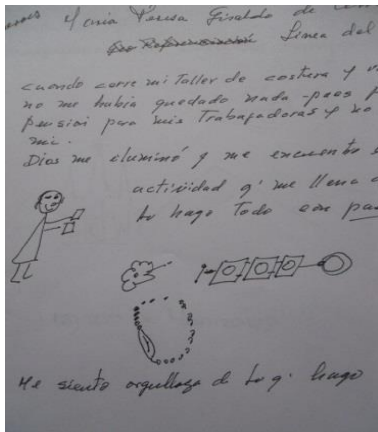 Maria Teresa Giraldo de
Linea del
cuando cerre mi Taller de costura y
no me habia quedado nada - pues
pension para mis Trabajadoras y no
mi.
Dios me iluminó y me encuentro
actividad q' me llena
Lo hago Todo con
Me siento orgullosa d lo q' hago